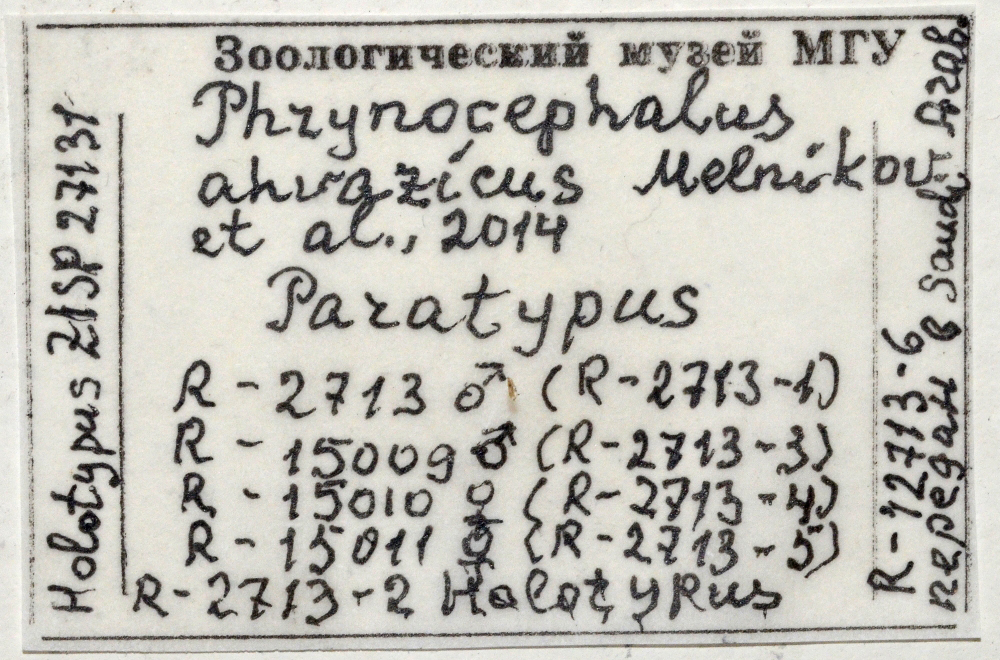 Зоологический музей МГУ
Phrynocephalus
ahvazicus Melnikov
et al., 2014
Paratypus
R - 2713 ♂ (R-2713-1)
R - 15009 ♂ (R-2713-3)
R - 15010 ♀ (R-2713-4)
R - 15011 ♀ (R-2713-5)
R-2713-2 Holotypus
Holotypus ZISP 27131
R-12713-6
передан в Saudi Arab.